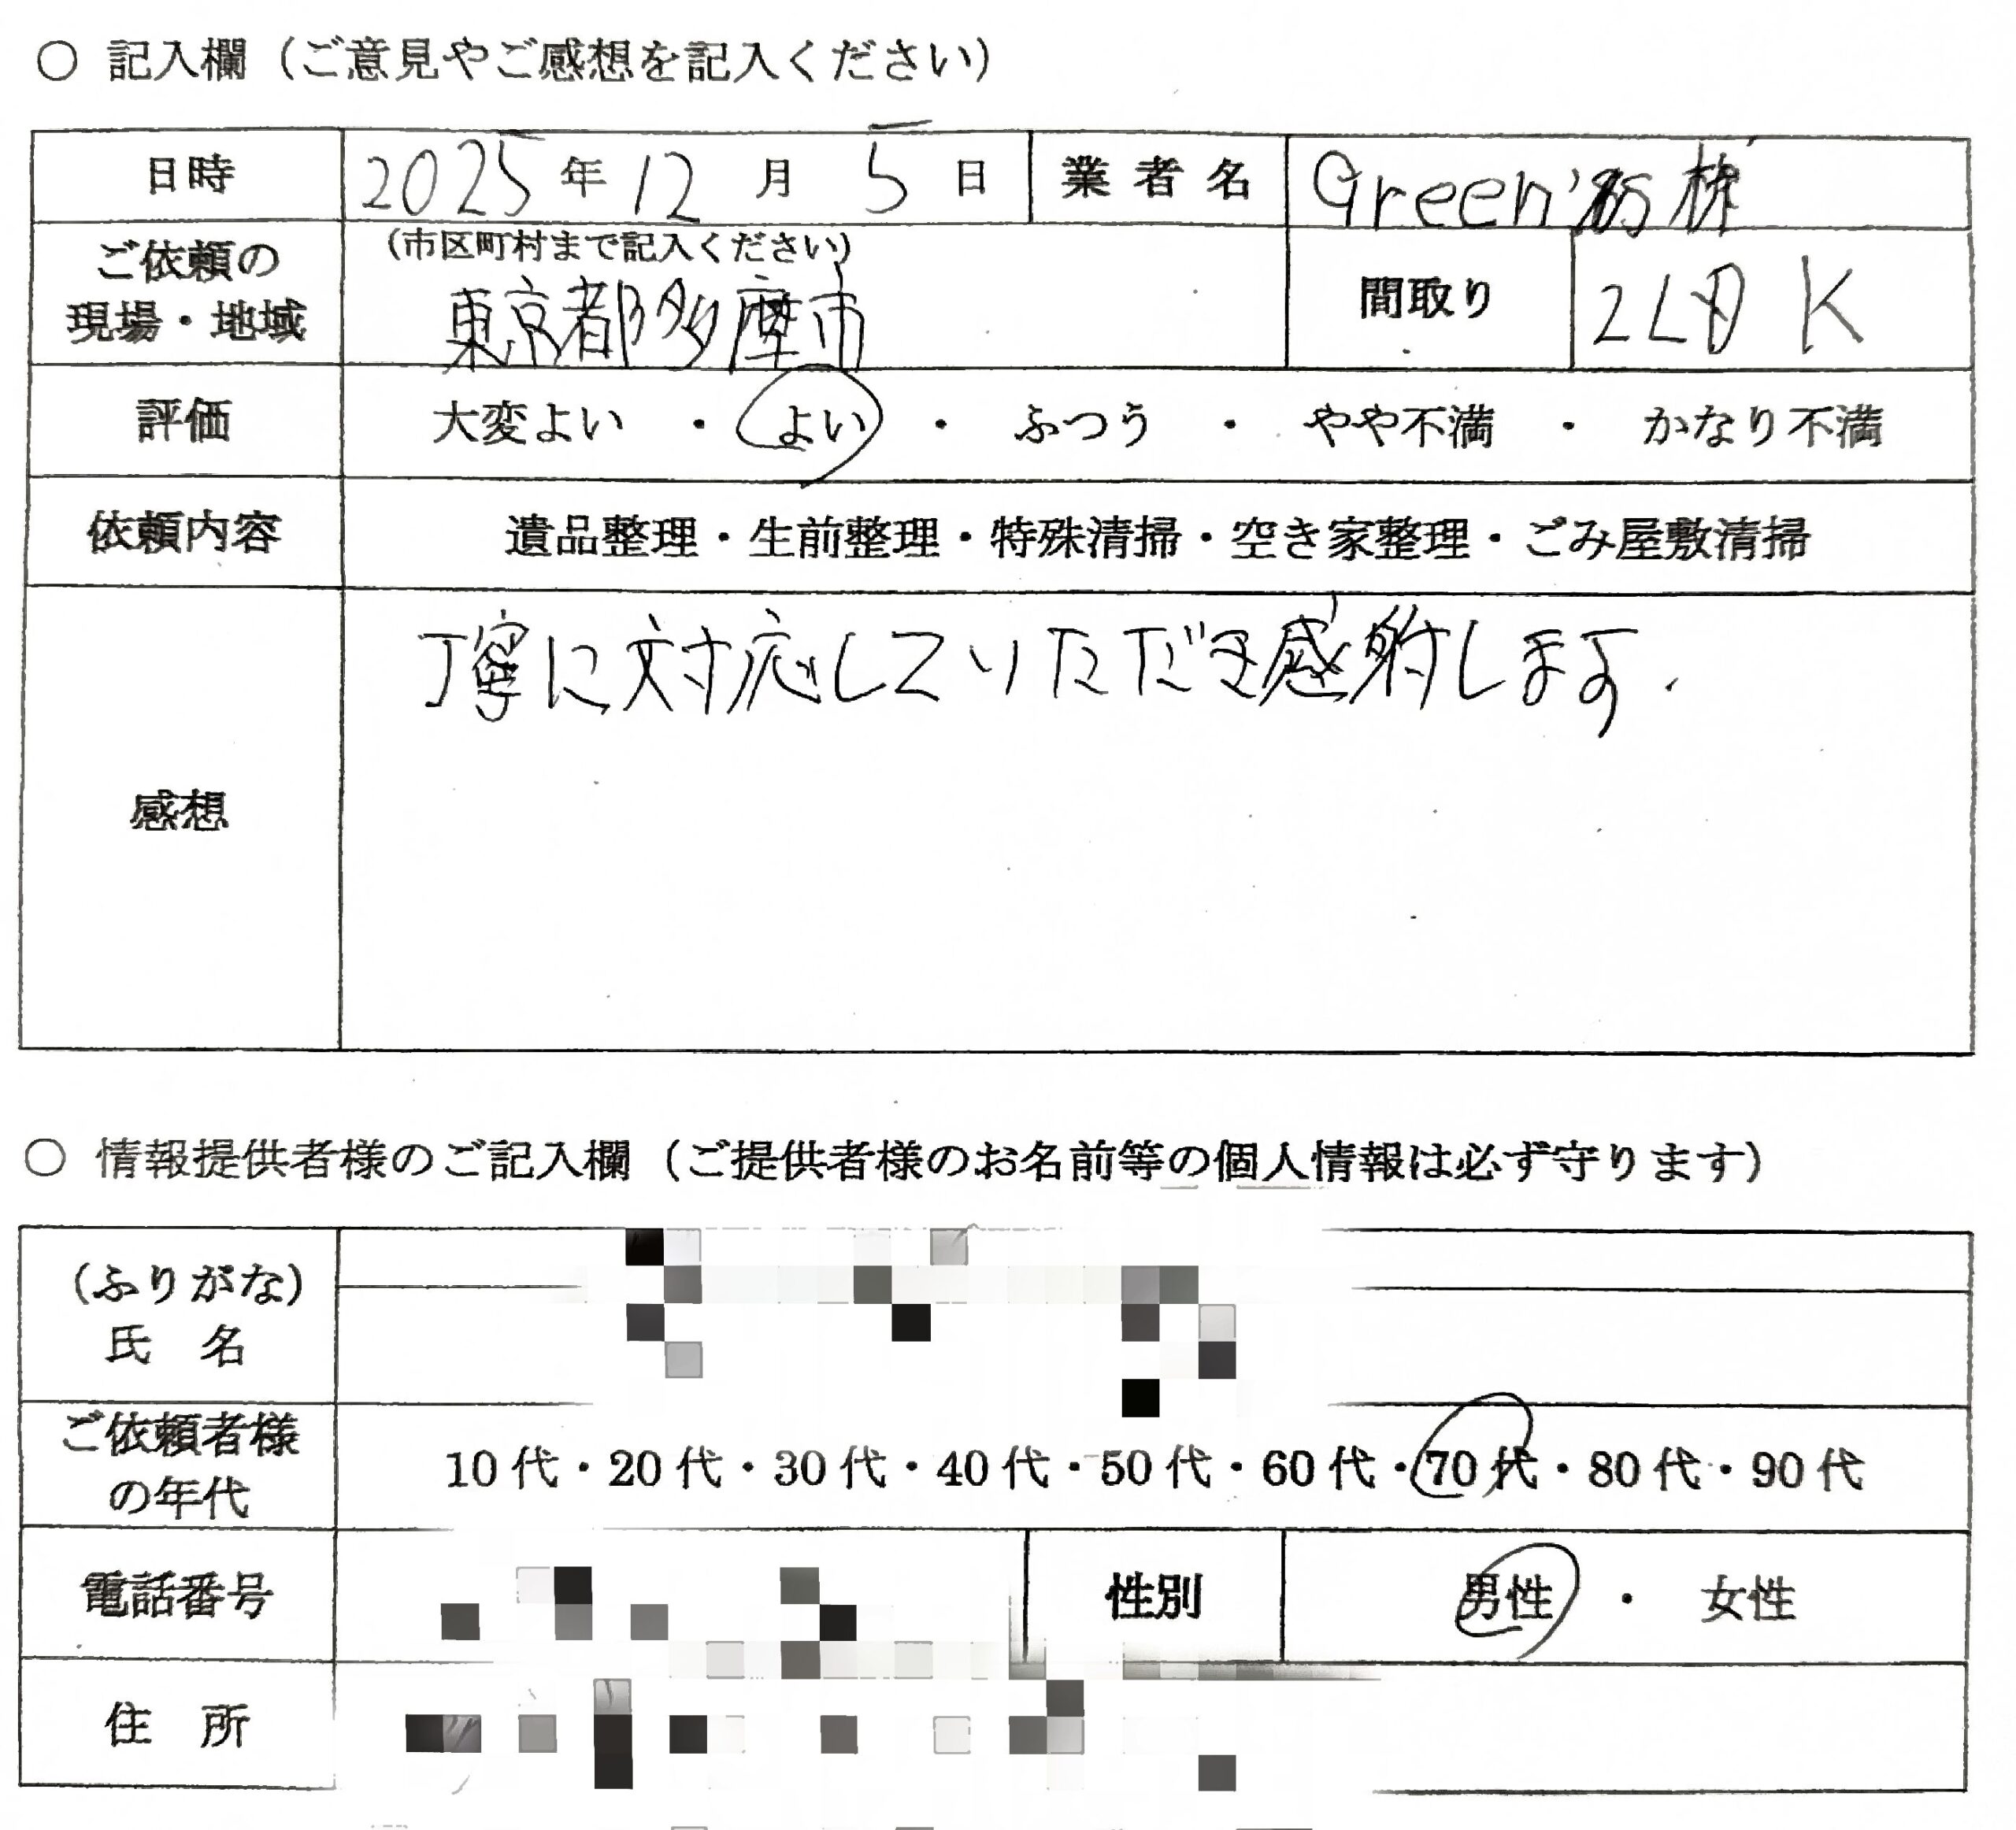 ○ 記入欄（ご意見やご感想を記入ください）
日時 2025年12月5日 業者名 Green's株
ご依頼の現場・地域 （市区町村まで記入ください）
東京都多摩市 間取り 2LDK
評価 大変よい ・ よい ・ ふつう ・ やや不満 ・ かなり不満
依頼内容 遺品整理・生前整理・特殊清掃・空き家整理・ごみ屋敷清掃
感想 丁寧に対応していただき感謝します.
○ 情報提供者様のご記入欄（ご提供者様のお名前等の個人情報は必ず守ります）
（ふりがな）
氏 名
ご依頼者様の年代 10代・20代・30代・40代・50代・60代・70代・80代・90代
電話番号 性別 男性 ・ 女性
住 所